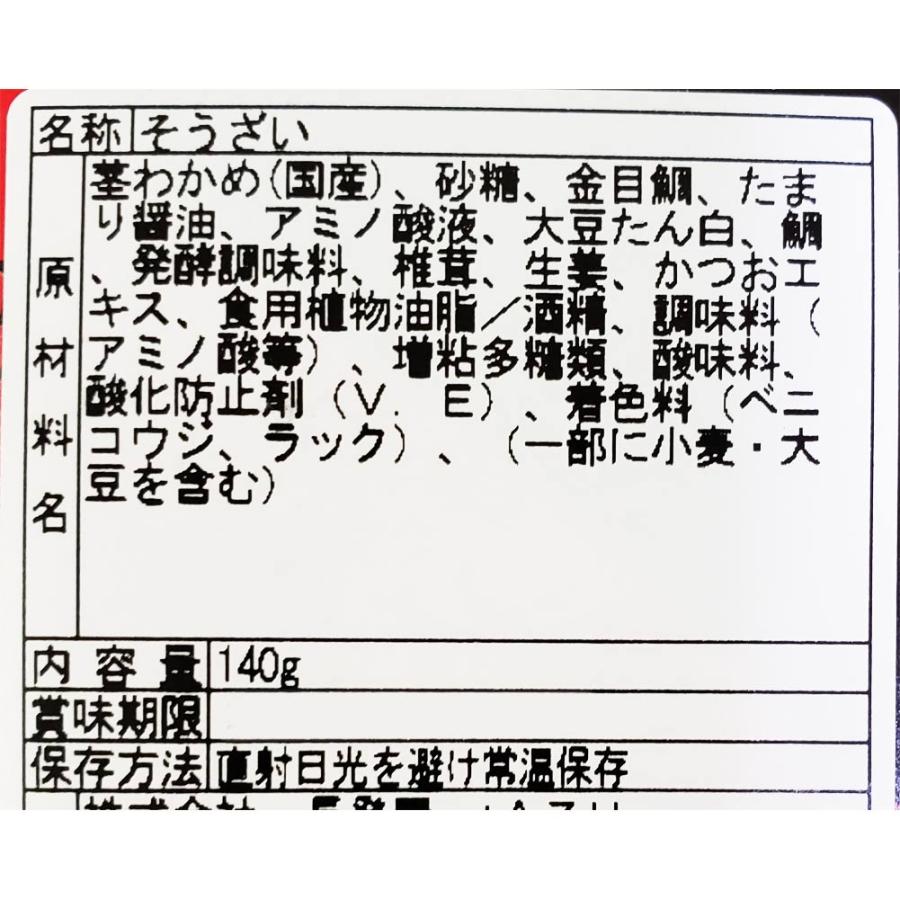 名称 そうざい
原材料名
茎わかめ(国産)、砂糖、金目鯛、たま
り醤油、アミノ酸液、大豆たん白、鯛
、発酵調味料、椎茸、生姜、かつおエ
キス、食用植物油脂／酒精、調味料（
アミノ酸等）、増粘多糖類、酸味料、
酸化防止剤（Ｖ．Ｅ）、着色料（ベニ
コウジ、ラック）、（一部に小麦・大
豆を含む）
内容量 140g
賞味期限
保存方法 直射日光を避け常温保存
株式会社